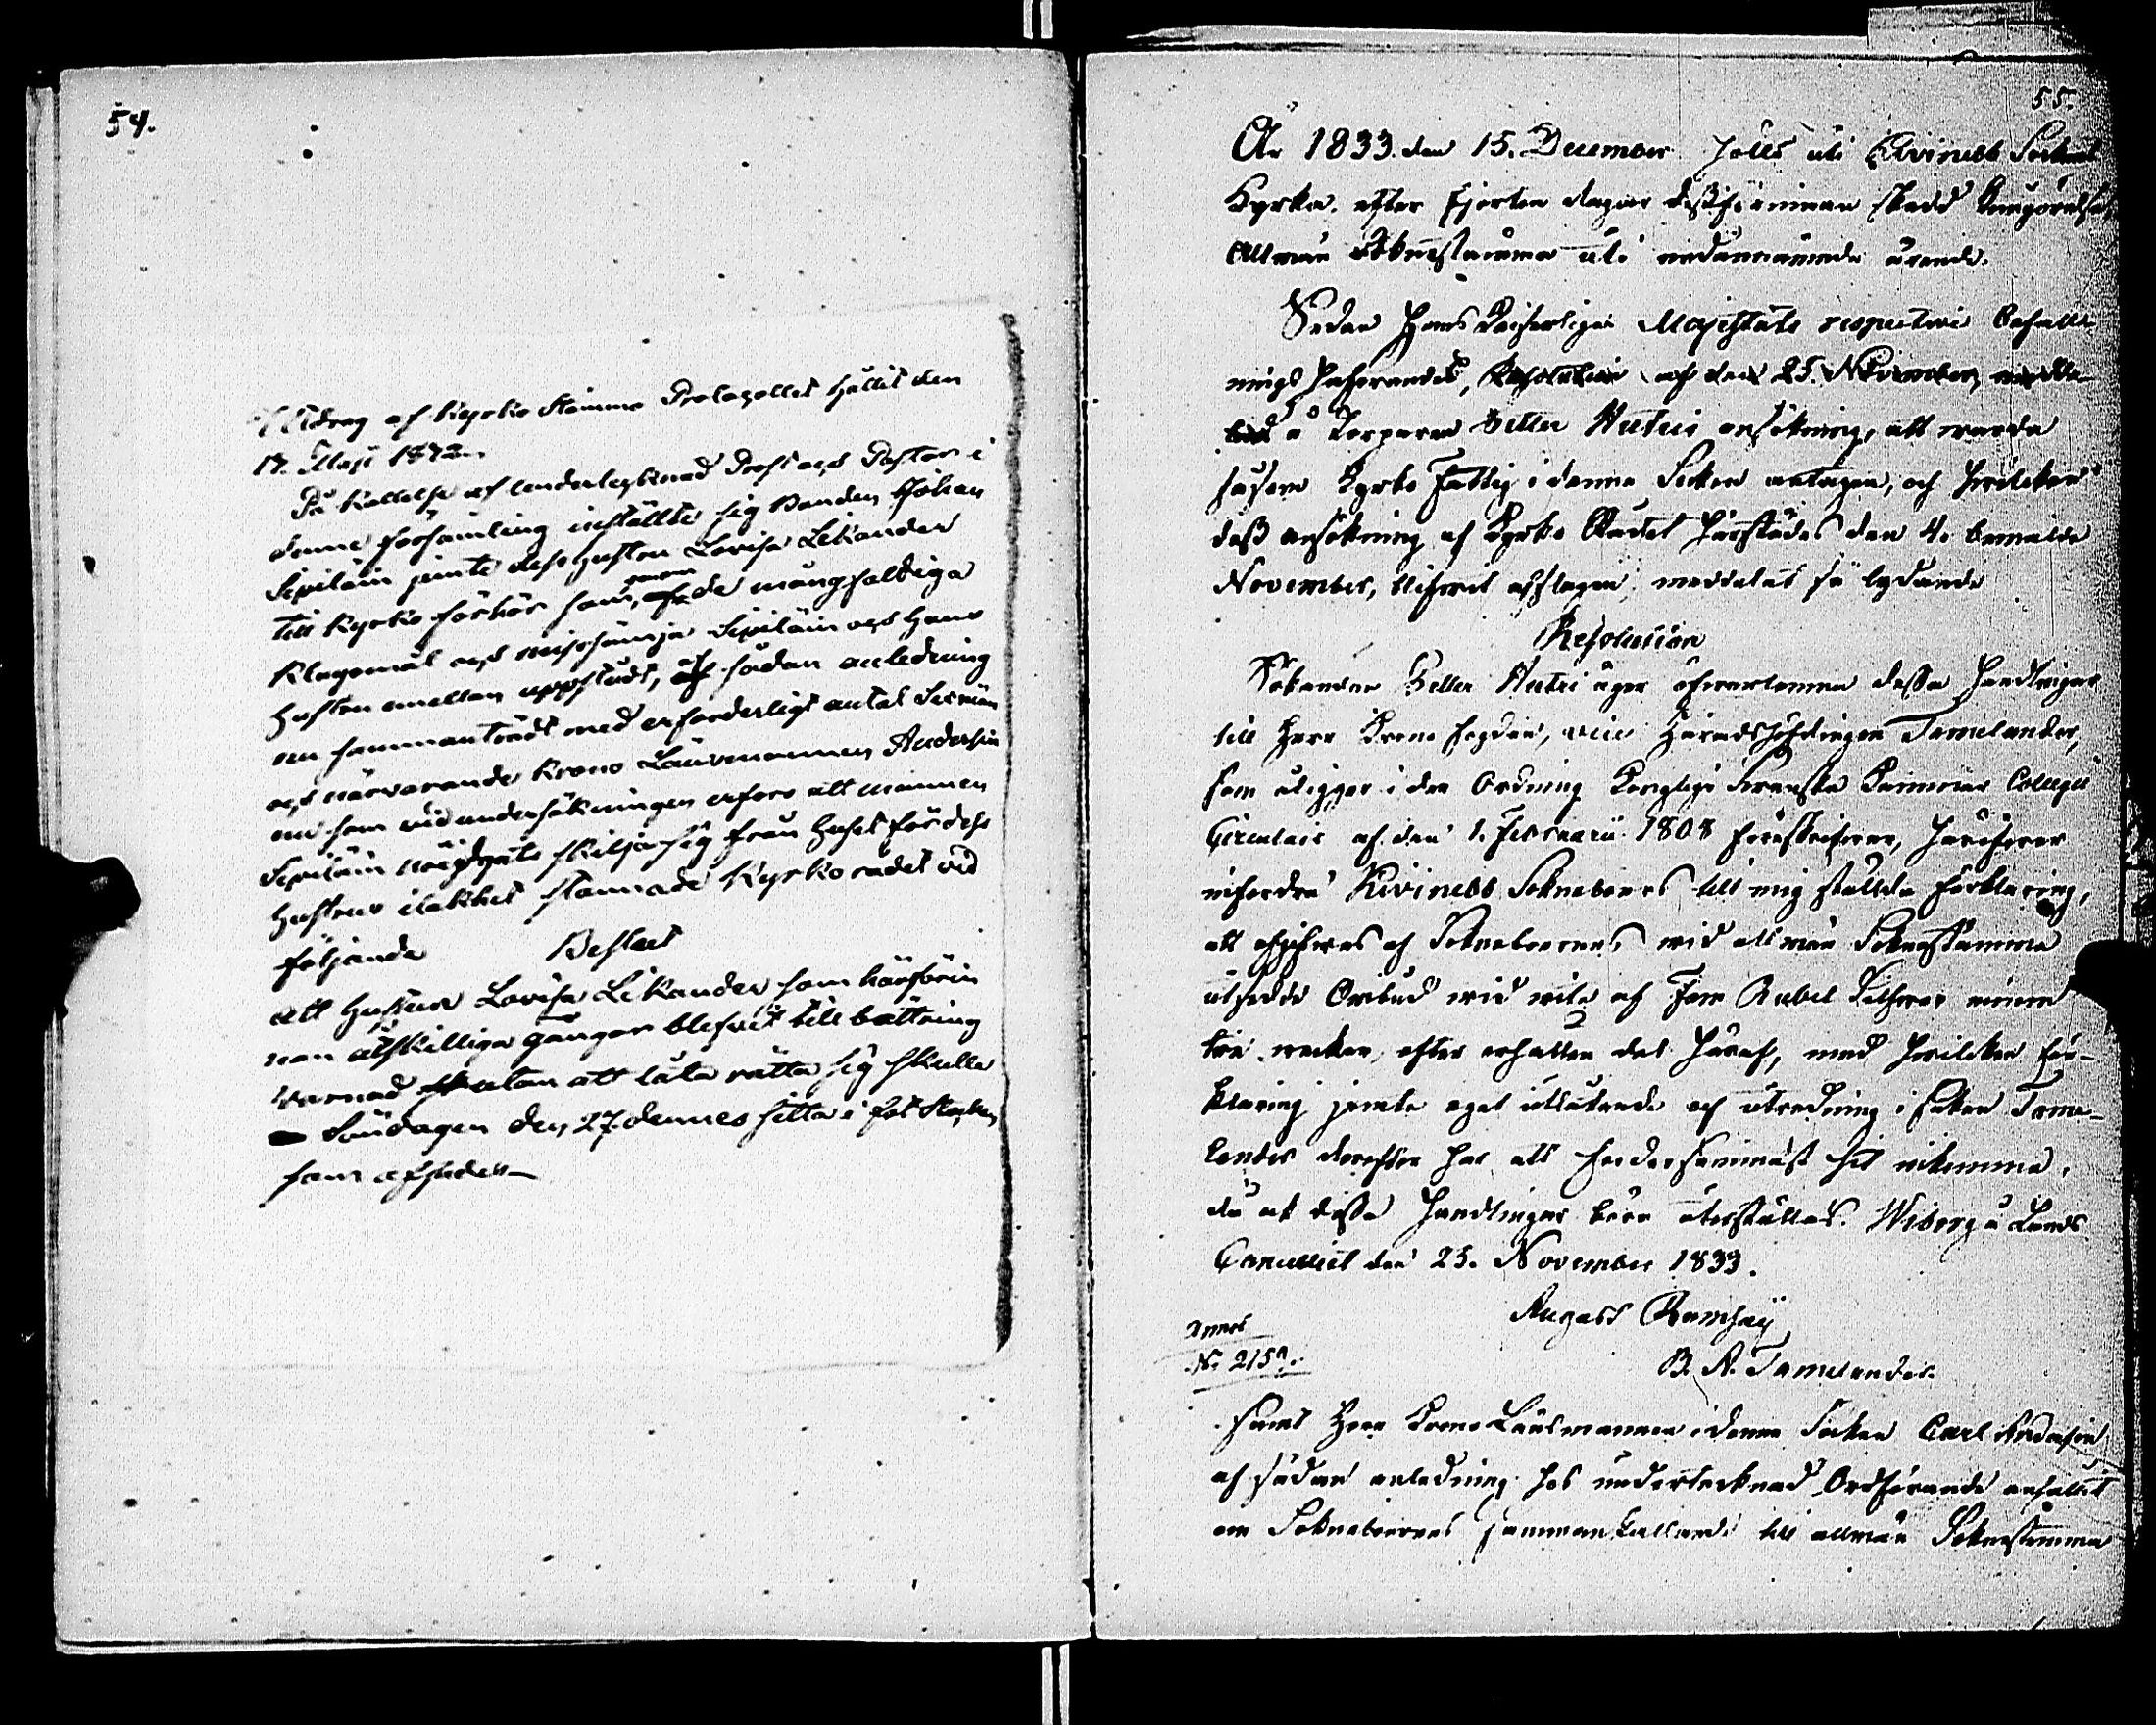 54.
Utdrag af Kyrko Stämmo Protocollet hållit den
17. Maji 1832.
På kallelse af undertecknad Prost och Pastor i
denne församling inställte sig Bonden Johan
Sipiläin jemte dess hustru Lovisa Lekander
till Kyrko förhör som, genom de mångfaldiga
Klagomål och missämja Sipiläin och hans
hustru emellan uppstådt, af sådan anledning
nu sammanträdt med erforderligt antal Sexmän
och närvarande Krono Länsmannen Andersin
nu som vid undersökningen erfors att mannen
Sipiläin nödgats skilja sig från huset för dess
hustrus elakhet stannade Kyrkorådet vid
följande Beslut
att hustrun Lovisa Lekander som härförin
nan åtskilliga gångor blefvit till bättring
varnad utan att låta rätta sig skulle
Söndagen den 27 dennes sitta i fot Stocken
som afsades
55.
År 1833 den 15. December hölls uti Kivinebb Sockens
Kyrka, efter fjorton dagar dessförinnan skedd kungörelse,
Allmän Socknestämma uti nedannämnde ärende.
Sedan Hans Kejserliga Majestäts respective Befall-
nings hafvandes, Resolution af den 25. November,
å Torparen Petter Hutri ansökning, att warda
såsom Kyrko Fattig i denna Socken antagen, och hvilcken
dess ansökning af Kyrko Rådet härstädes den 4. bemälde
November, blifvit afslagen, meddelats så lydande
Resolution
Sökanden Petter Hutri äger öfverlemna dessa handlingar
till Herr Krono fogden, vice Häradshöfdingen Tamelander,
som åligger i den Ordning Kongliga Svenska Kammar Collegii
Circulair af den 1. Februarii 1808 föreskrifver, häröfver
infordra Kivinebb Sockneboers till mig ställda förklaring,
att afgifwas af Sockneboernes wid allmän Socknestämma
utsedde Ombud wid wite af Fem Rubel Silfwer innom
tre weckor, efter erhållen del häraf, med hvilcken för-
klaring jemte eget utlåtande och utredning i saken Tame-
lander derefter har att fordersammast hit inkomma,
då ock dessa handlingar böra återställas. Wiborg å Lands
Cancelliet den 25. November 1833.
August Ramsay
B. A. Tamelander.
N: 2159.
samt Herr Krono Länsmannen i denna Socken Carl Andersin
af sådan anledning hos undertecknad Ordförande anhållit
om Sockneboernes sammankallande till allmän Socknestämma